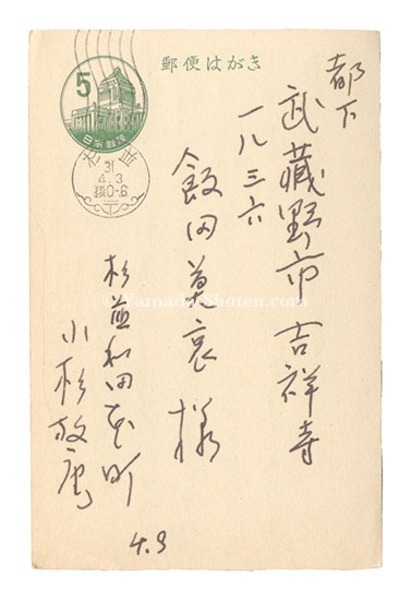 郵便はがき
5
日本郵便
31
4.3
後0-6
都下
武蔵野市吉祥寺
一八三六
飯田莫哀様
杉並和田本町
小杉放
4.3
© YamadaShoten.com